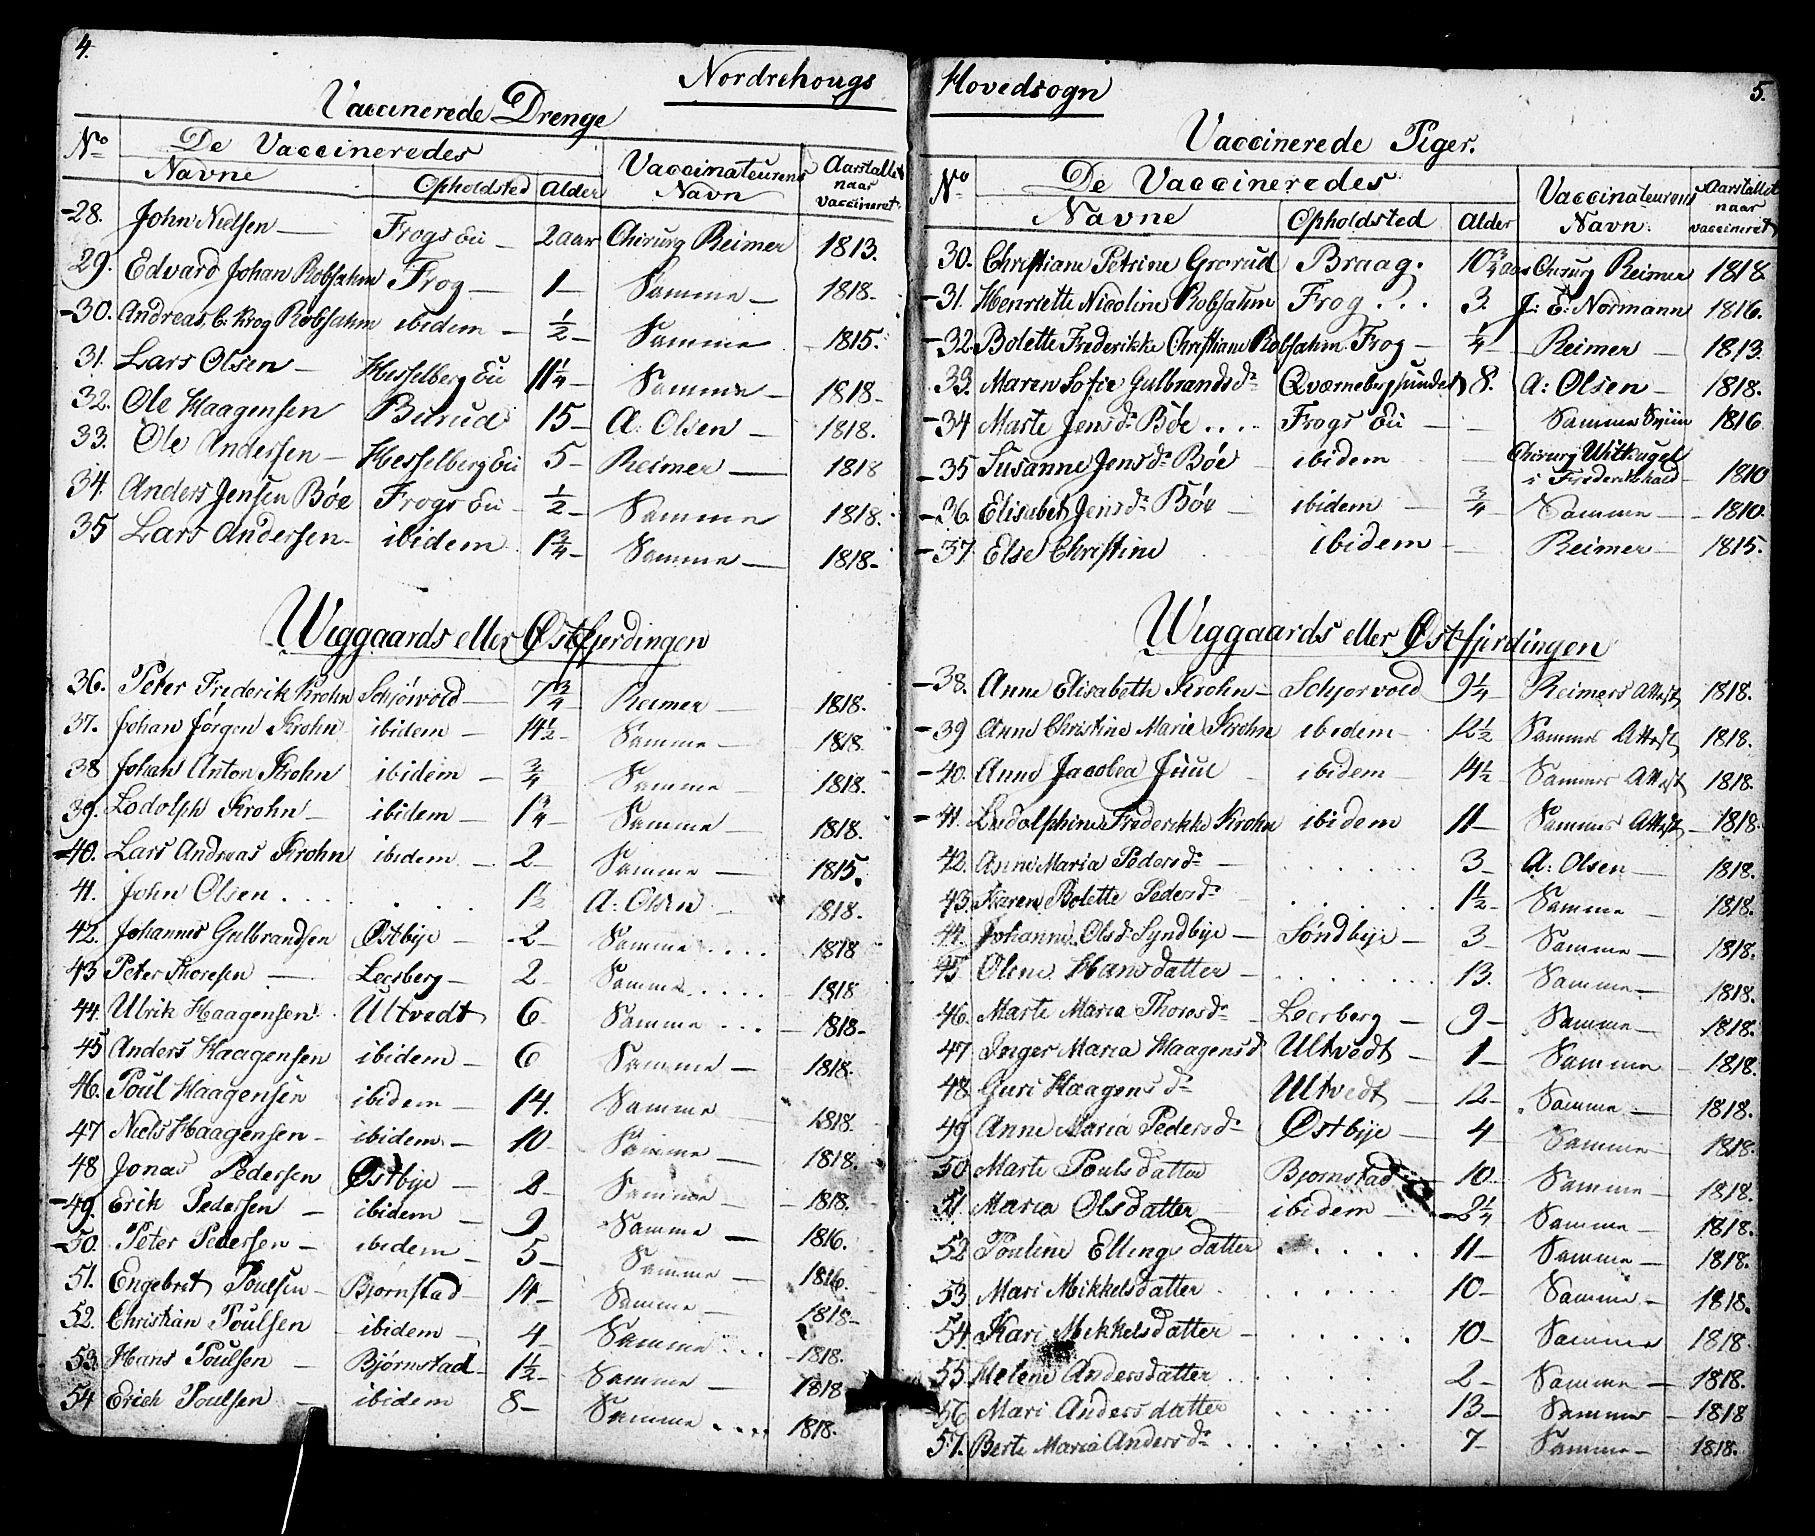 4.
Nordrehougs
Vaccinerede Drenge
No De Vaccineredes Vaccinateurens Navn Aarstallet naar vaccineret
Navne Opholdsted Alder
28. John Nielsen Frogs Eie 2 aar Chirurg Reimer 1813.
29. Edvard Johan Robsahm Frog 1 Samme 1818.
30. Andreas C. Krog Robsahm ibidem 1/2 Samme 1815.
31. Lars Olsen Hesselberg Eie 11 1/4 Samme 1818.
32. Ole Haagensen Burud 15 A: Olsen 1818.
33. Ole Andersen Hesselberg Eie 5 Reimer 1818
34. Anders Jensen Böe Frogs Eie 1/2 Samme 1818.
35 Lars Andersen ibidem 1 3/4 Samme 1818.
Wiggaards eller Østfjerdingen
36. Peter Frederik Krohn Schjörvold 7 3/4 Reimer 1818.
37. Johan Jörgen Krohn ibidem 14 1/2 Samme 1818.
38 Johan Anton Krohn ibidem 3/4 Samme 1818.
39. Lodolph Krohn ibidem 1 3/4 Samme 1818.
40. Lars Andreas Krohn ibidem 2 Samme 1815.
41. John Olsen 1 1/2 A: Olsen 1818.
42. Johannes Gulbrandsen Østbye 2 Samme 1818
43 Peter Thoresen Leerberg 2 Samme 1818
44. Ulrik Haagensen Ultvedt 6 Samme 1818.
45 Anders Haagensen ibidem 6 Samme 1818.
46. Poul Haagensen ibidem 14. Samme 1818.
47 Niels Haagensen ibidem 10 Samme 1818.
48 Jonas Pedersen Østbye 2 Samme 1818.
49. Erik Pedersen ibidem 9 Samme 1816.
50. Peter Pedersen ibidem 5 Samme 1816.
51. Engebret Poulsen Bjørnstad 14 Samme 1818
52. Christian Poulsen ibidem 4 Samme 1818.
53. Hans Poulsen Bjørnstad 1 1/2 Samme 1818
54 Erich Poulsen ibidem 8 Samme 1818.
5.
Hovedsogn
Vaccinerede Piger.
No De Vaccineredes Vaccinateurens Navn. Aarstallet naar vaccineret
Navne Opholdsted Alder
30. Christiane Petrine Grorud Braag. 10 3/4 aar Chirurg Reimer 1818
31. Henriette Nicoline Robsahm Frog 3 J: E: Normann 1816.
32. Bolette Frederikke Christiane Robsahm Frog 1/4 Reimer 1813.
33. Maren Sofie Gulbrandsdr. Qværnebergsundet 8. A: Olsen 1818.
34 Marte Jensdr. Böe Frogs Eie Samme 1816
35 Susanne Jensdr. Böe ibidem Chirurg Witkugel i Frederikshald 1810
36. Elisabeth Jensdr. Böe ibidem 3/4 Samme 1810.
37. Else Christine ibidem Reimer 1815.
Wiggaards eller Østfjerdingen
38. Anne Elisabeth Krohn Schjorvold 9 1/4 Reimers Attest 1818.
39 Anne Christine Marie Krohn ibidem 12 1/2 Sammes Attest 1818.
40. Anne Jacobea Juul ibidem 14 1/2 Sammes Attest 1818.
41. Ludolphine Frederikke Krohn ibidem 11 Sammes Attest 1818.
42. Anne Maria Pedersdr. 3 A: Olsen 1818.
43. Karen Bolette Pedersdr. 1 1/2 Samme 1818.
44. Johanne Olsd. Syndbye Söndbye 3 Samme 1818.
45 Oline Hansdatter 13. Samme 1818.
46. Marte Maria Thoresdr. Leerberg 9 Samme 1818.
47 Inger Maria Haagensd. Ultvedt 1 Samme 1818.
48. Guri Haagensdr. Ultvedt 12 Samme 1818.
49 Anne Maria Pedersdr. Østbye 4 Samme 1818.
50. Marte Poulsdatter Bjornstad 10 Samme 1818.
51. Maria Olsdatter ibidem 2 1/4 Samme 1818.
52 Pouline Ellingsdatter 11 Samme 1818.
53. Mari Mikkelsdatter 10 Samme 1818.
54. Kari Mikkelsdatter 10 Samme 1818
55 Helene Andersdatter 2 Samme 1818.
56 Mari Andersdatter 13 Samme 1818
57. Berte Maria Andersdr. 7 Samme 1818.